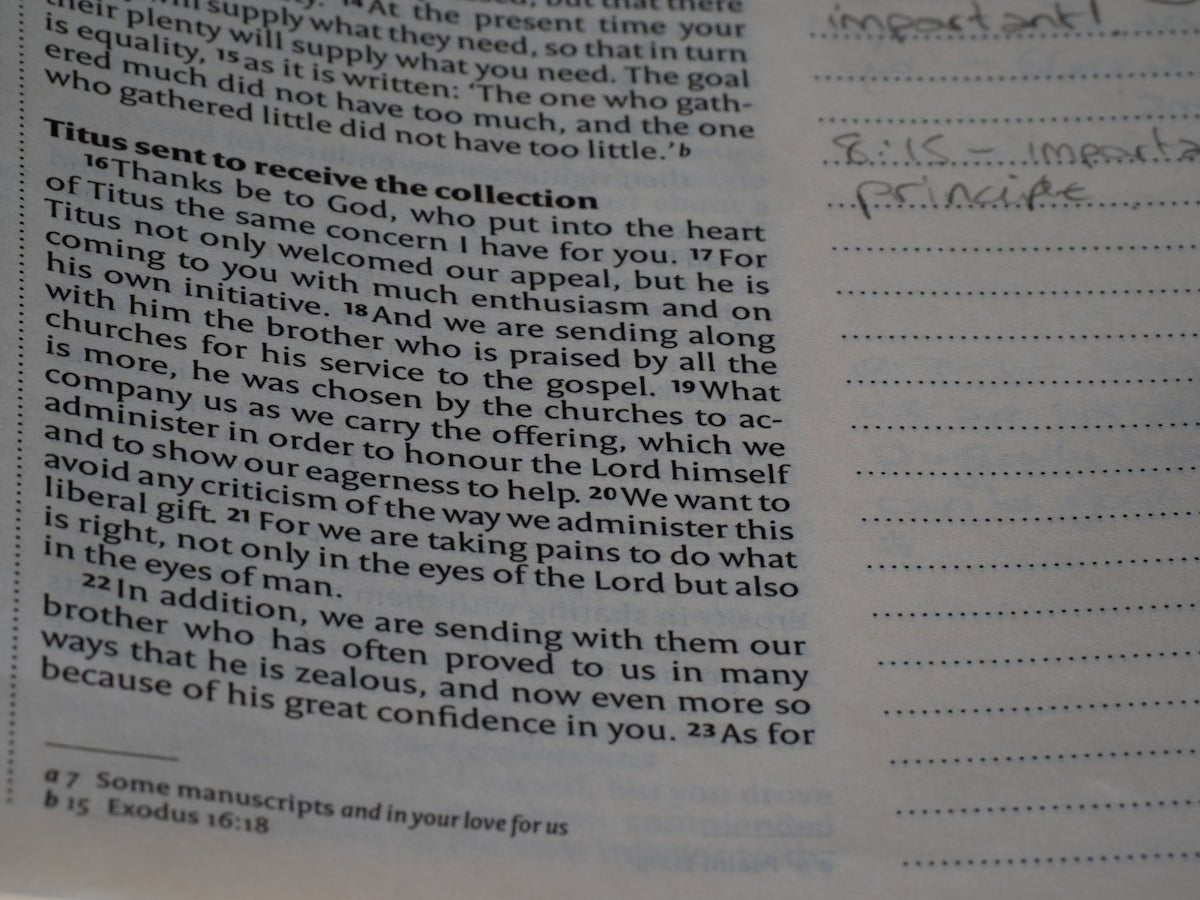 At the present time your
will supply what they need, so that in turn
their plenty will supply what you need. The goal
is equality, 15 as it is written: ‘The one who gath-
ered much did not have too much, and the one
who gathered little did not have too little.’ b
Titus sent to receive the collection
16 Thanks be to God, who put into the heart
of Titus the same concern I have for you. 17 For
Titus not only welcomed our appeal, but he is
coming to you with much enthusiasm and on
his own initiative. 18 And we are sending along
with him the brother who is praised by all the
churches for his service to the gospel. 19 What
is more, he was chosen by the churches to ac-
company us as we carry the offering, which we
administer in order to honour the Lord himself
and to show our eagerness to help. 20 We want to
avoid any criticism of the way we administer this
liberal gift. 21 For we are taking pains to do what
is right, not only in the eyes of the Lord but also
in the eyes of man.
22 In addition, we are sending with them our
brother who has often proved to us in many
ways that he is zealous, and now even more so
because of his great confidence in you. 23 As for
a 7 Some manuscripts and in your love for us
b 15 Exodus 16:18
important!
8:15 – importa
principle